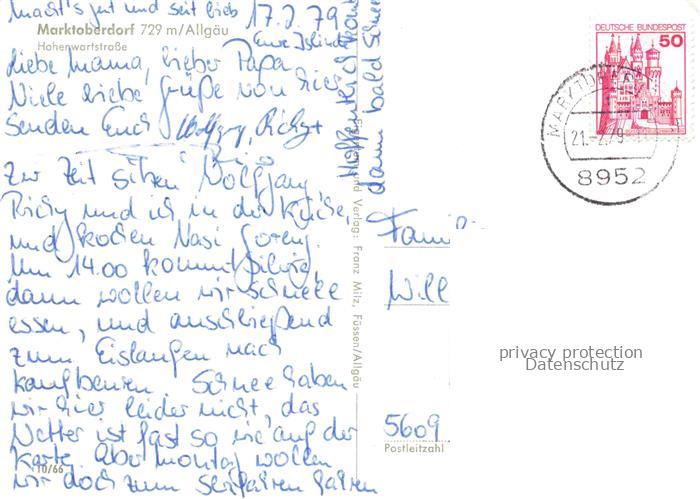 Macht's gut und seid lieb
17.2.79
Marktoberdorf 729 m/Allgäu
Hohenwartstraße
Eure
liebe Mama, lieber Papa,
Viele liebe Grüße von hier
senden Euch Wolfgang, Richy +
Zur Zeit sitzen Wolfgang
Richy und ich in der Küche,
und kochen Nasi Goreng.
Um 14.00 kommt Silvia,
dann wollen wir schnell
essen, und anschließend
zum Eislaufen nach
Kaufbeuren Schnee haben
wir hier leider nicht, das
Wetter ist fast so wie auf der
Karte. Aber Montag wollen
wir doch zum Skifahren fahren
10/66
Hoffentlich
dann bald Schnee
und Verlag: Franz Milz, Füssen/Allgäu
DEUTSCHE BUNDESPOST
50
21.-2.79
8952
Fami
Will
privacy protection
Datenschutz
5609
Postleitzahl